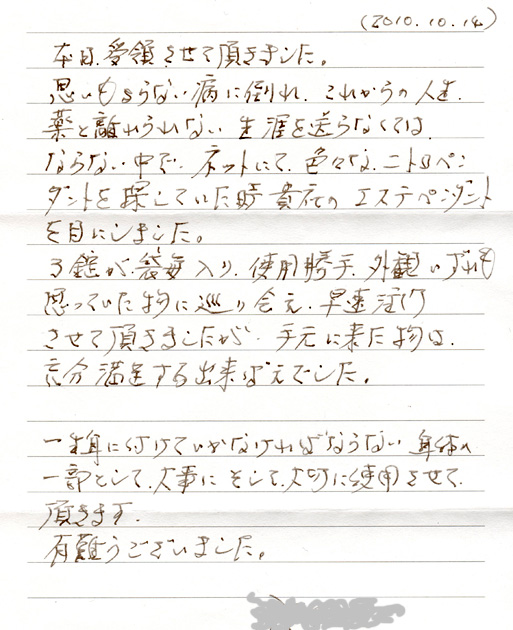 (2010.10.14)
本日、受領させて頂きました。
思いもよらない病に倒れ、これからの人生、
薬と離れられない生涯を送らなくては
ならない中で、ネットにて、色々な、ニトロペン
ダントを探していた時貴店のエステペンダント
を目にしました。
3錠が袋毎入り、使用勝手、外観いずれも
思っていた物に巡り会え、早速注文
させて頂きましたが、手元に来た物は、
充分満足する出来ばえでした。
一生身に付けていかなければならない身体の
一部として、大事にそして、大切に使用させて
頂きます。
有難うございました。